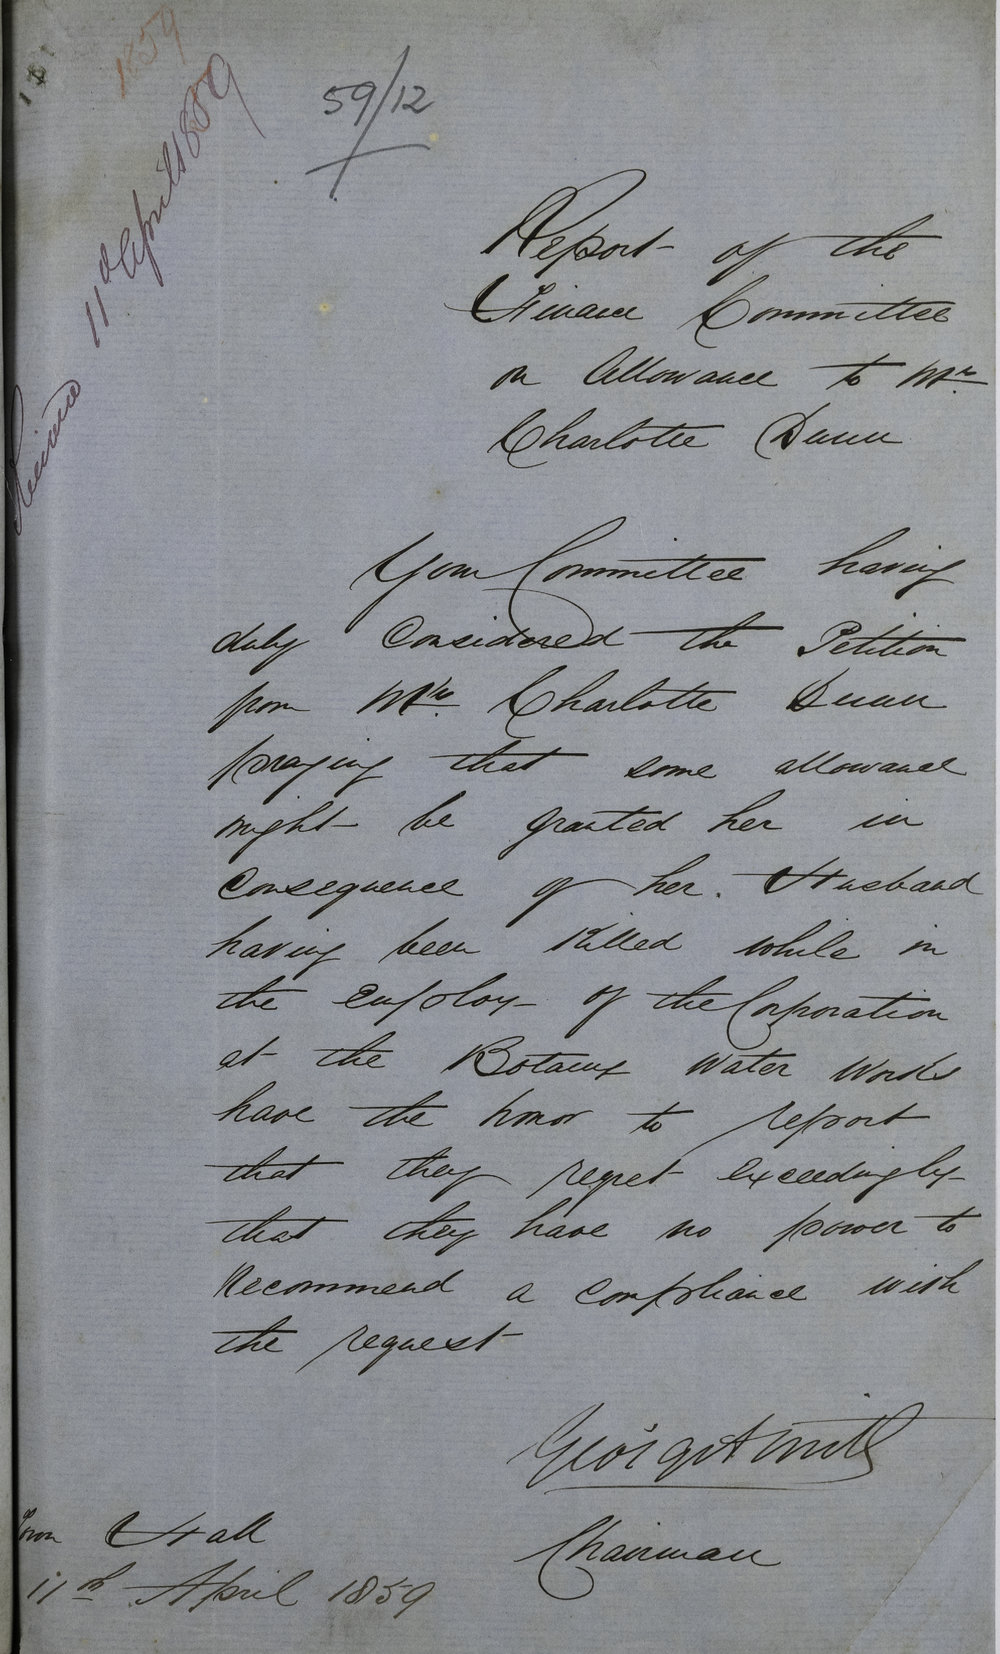 1859
59/12
Received 11th April 1859
Report of the
Finance Committee
on Allowance to Mrs.
Charlotte Dunn
Your Committee having
duly Considered the Petition
from Mrs. Charlotte Dunn
praying that some allowance
might be granted her in
Consequence of her Husband
having been Killed while in
the Employ of the Corporation
at the Botany Water Works
have the honor to report
that they regret exceedingly
that they have no power to
Recommend a Compliance with
the request
George A
Chairman
Town Hall
11th April 1859